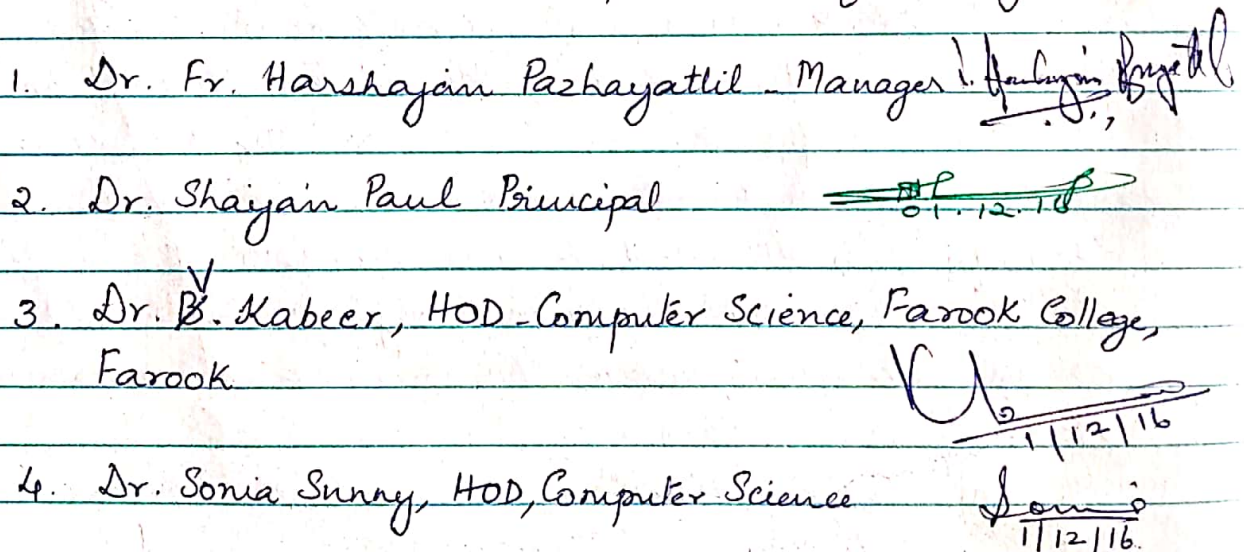 1. Dr. Fr. Harshajan Pazhayattil - Manager
2. Dr. Shaijan Paul Principal 01.12.16
3. Dr. V. Kabeer, HOD - Computer Science, Farook College,
Farook
1/12/16
4. Dr. Sonia Sunny, HOD, Computer Science
1/12/16.